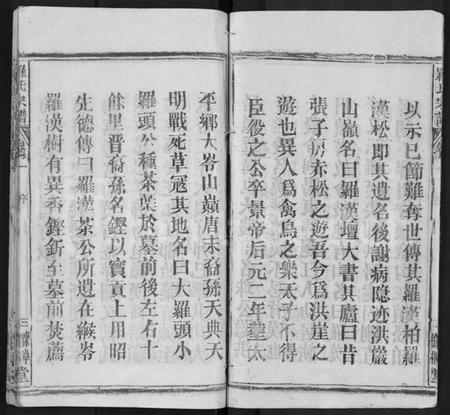 以示已節難奪世傳其羅漢柏羅
漢松即其遺名後謝病隐迹洪巖
山巔名曰羅漢壇大書其廬曰昔
張子房赤松之遊吾今爲洪崖之
遊也異人爲禽鳥之樂太子不得
臣役之公卒景帝后元二年塟太
平鄉大岺山巔唐末裔孫天典天
明戰死草寇其地名曰大羅頭小
羅頭公種茶葉於墓前後左右十
餘里晋裔孫名鏗以實貢上用昭
先德傳曰羅漢茶公所遺在縱岺
羅漢樹有異香鏗釿至墓前焚薦
羅氏宗譜
序
三